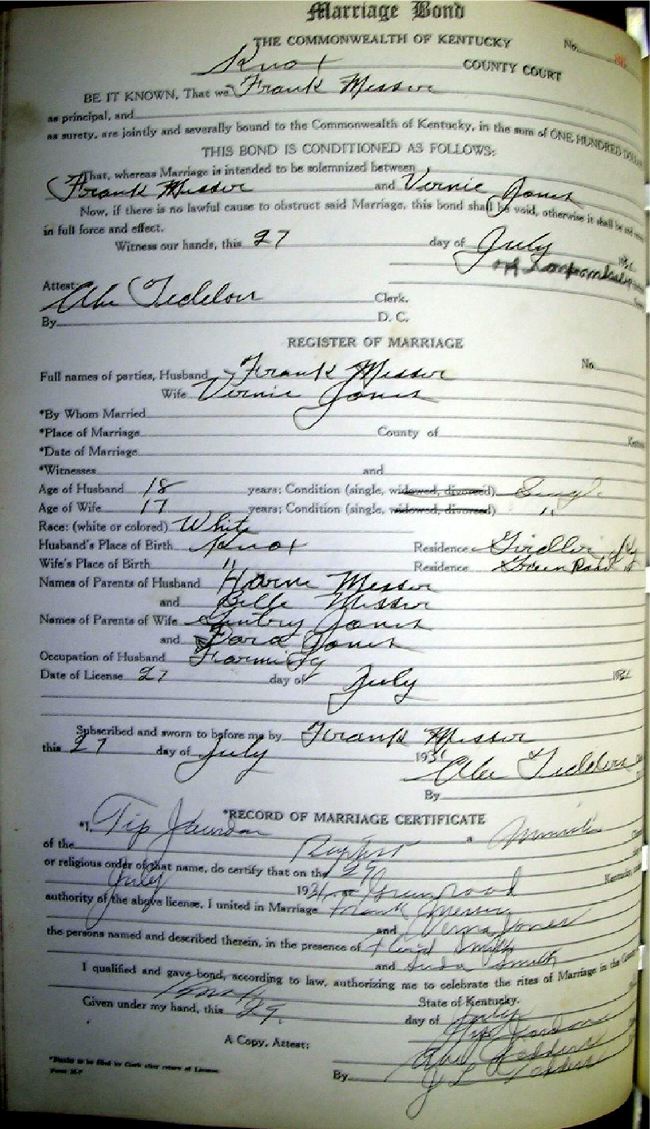 Marriage Bond
THE COMMONWEALTH OF KENTUCKY No.
Knox COUNTY COURT
BE IT KNOWN, That we Frank Messer
as principal, and
as surety, are jointly and severally bound to the Commonwealth of Kentucky, in the sum of ONE HUNDRED
THIS BOND IS CONDITIONED AS FOLLOWS:
That, whereas Marriage is intended to be solemnized between
Frank Messer and Vernie Jones
Now, if there is no lawful cause to obstruct said Marriage, this bond shall be void, otherwise it shall be
in full force and effect.
Witness our hands, this 27 day of July 193
Attest:
Abe Clerk.
By D. C.
REGISTER OF MARRIAGE
Full names of parties, Husband Frank Messer No.
Wife Vernie Jones
*By Whom Married
*Place of Marriage County of
*Date of Marriage
*Witnesses and
Age of Husband 18 years; Condition (single, widowed, divorced) Singl
Age of Wife 17 years; Condition (single, widowed, divorced) "
Race: (white or colored) White
Husband's Place of Birth Knox Residence Girdler Ky
Wife's Place of Birth " Residence Green Road "
Names of Parents of Husband Harve Messer
and Belle Messer
Names of Parents of Wife Gentry Jones
and Jones
Occupation of Husband Farming
Date of License 27 day of July 193
Subscribed and sworn to before me by Frank Messer
this 27 day of July 1931
Abe Tedders
By
*RECORD OF MARRIAGE CERTIFICATE
*I, Tip a
of the Baptist
or religious order of that name, do certify that on the 29
July 1931 at
authority of the above license, I united in Marriage Frank
and Verna Jones
the persons named and described therein, in the presence of Floyd Smith
and Smith
I qualified and gave bond, according to law, authorizing me to celebrate the rites of Marriage in the
Knox State of Kentucky.
Given under my hand, this 29 day of July
Tip
A Copy, Attest: Abe Tedders
By J L Tedders
*Blanks to be filled by Clerk after return of License